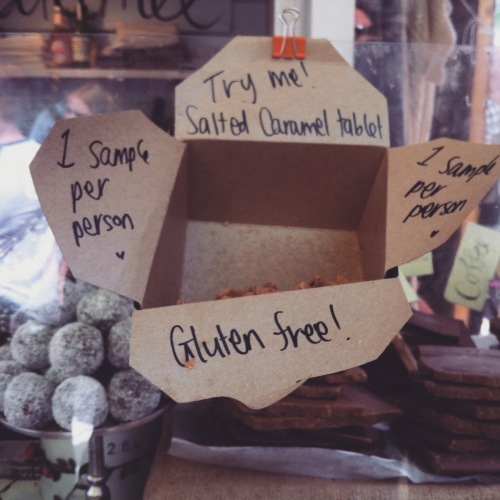 Try me!
Salted Caramel tablet
1 Sample
per
person
1 Sample
per
person
Gluten free!
Coffee
2.8